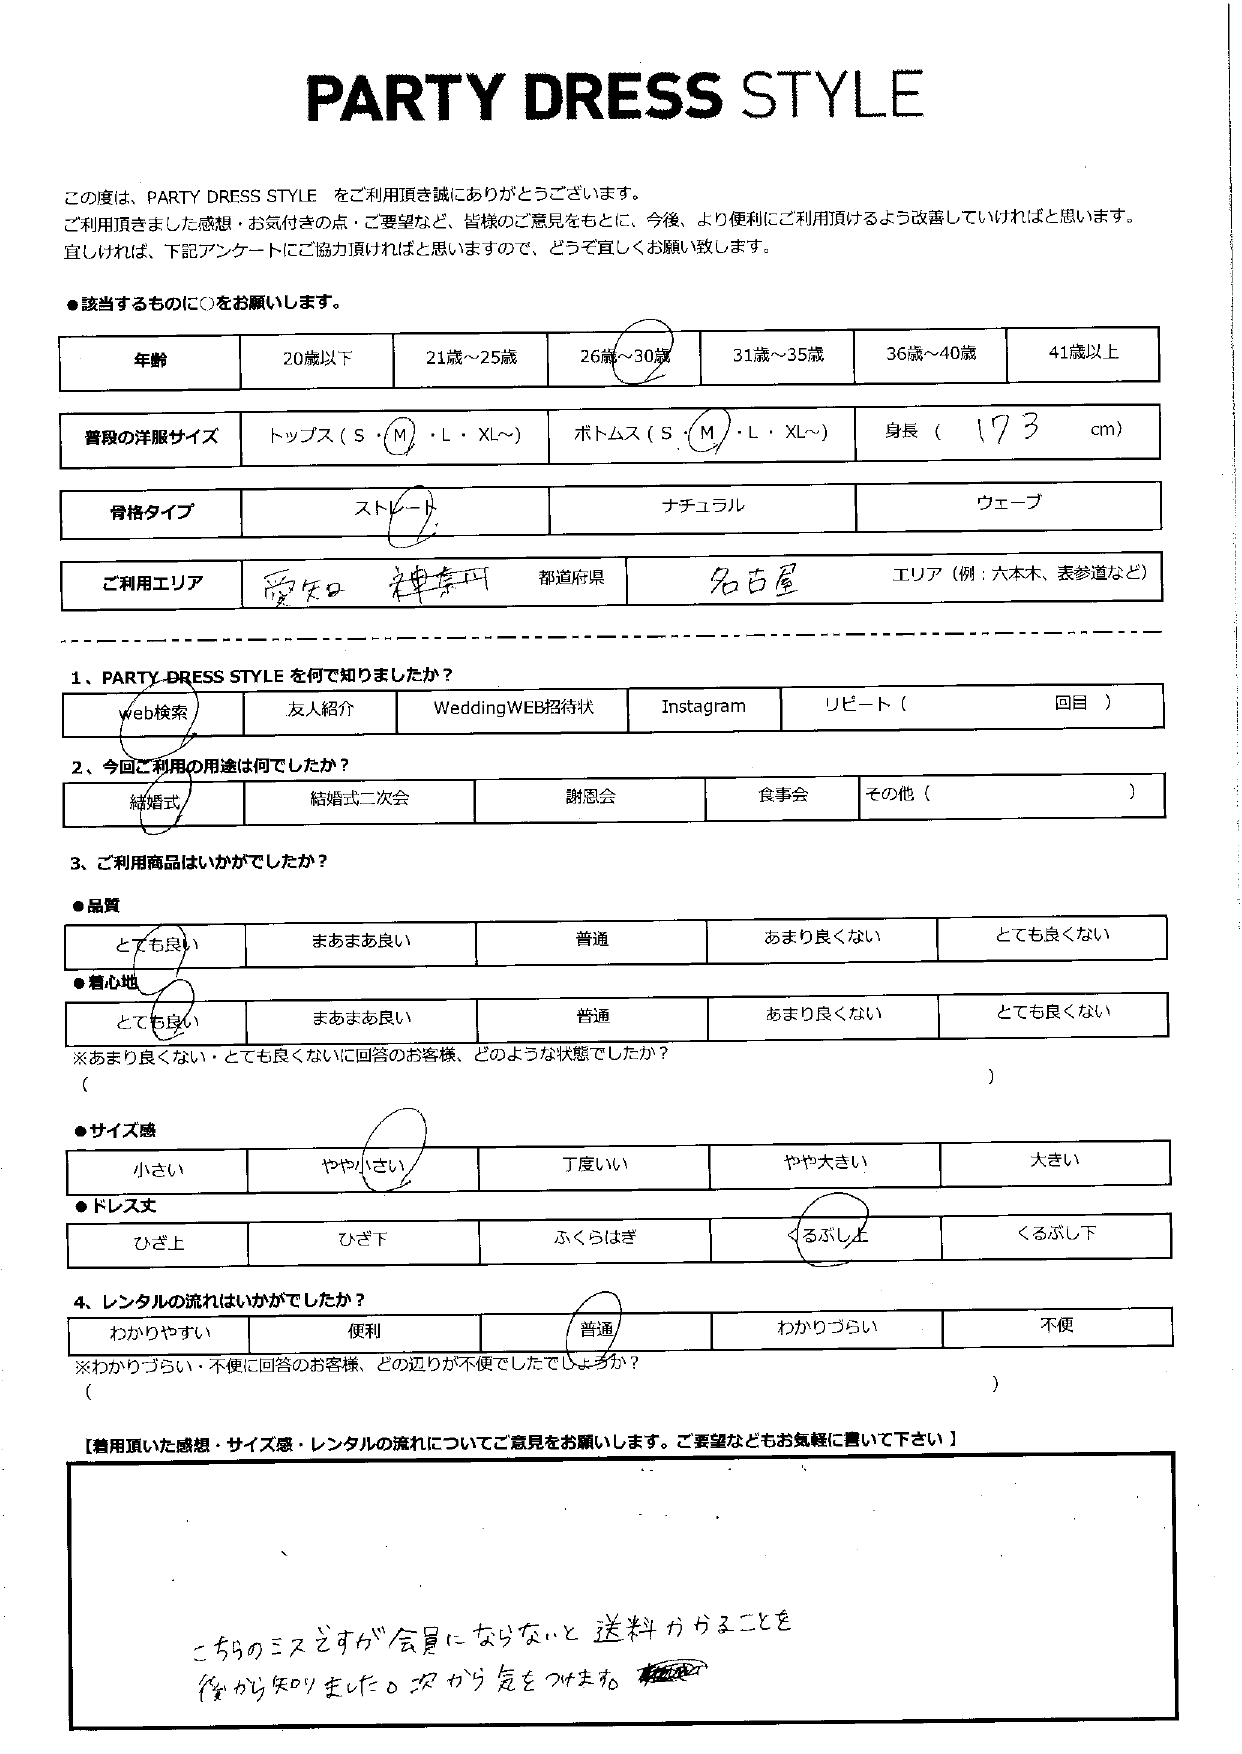 PARTY DRESS STYLE
この度は、PARTY DRESS STYLE をご利用頂き誠にありがとうございます。
ご利用頂きました感想・お気付きの点・ご要望など、皆様のご意見をもとに、今後、より便利にご利用頂けるよう改善していければと思います。
宜しければ、下記アンケートにご協力頂ければと思いますので、どうぞ宜しくお願い致します。
●該当するものに○をお願いします。
年齢 20歳以下 21歳～25歳 26歳～30歳 31歳～35歳 36歳～40歳 41歳以上
普段の洋服サイズ トップス（ S ・ M ・ L ・ XL～） ボトムス（ S ・ M ・ L ・ XL～） 身長 （ 173 cm）
骨格タイプ ストレート ナチュラル ウェーブ
ご利用エリア 愛知 神奈川 都道府県 名古屋 エリア（例：六本木、表参道など）
1、PARTY DRESS STYLE を何で知りましたか？
web検索 友人紹介 WeddingWEB招待状 Instagram リピート（ 回目 ）
2、今回ご利用の用途は何でしたか？
結婚式 結婚式二次会 謝恩会 食事会 その他（ ）
3、ご利用商品はいかがでしたか？
●品質
とても良い まあまあ良い 普通 あまり良くない とても良くない
●着心地
とても良い まあまあ良い 普通 あまり良くない とても良くない
※あまり良くない・とても良くないに回答のお客様、どのような状態でしたか？
（ ）
●サイズ感
小さい やや小さい 丁度いい やや大きい 大きい
●ドレス丈
ひざ上 ひざ下 ふくらはぎ くるぶし上 くるぶし下
4、レンタルの流れはいかがでしたか？
わかりやすい 便利 普通 わかりづらい 不便
※わかりづらい・不便に回答のお客様、どの辺りが不便でしたでしょうか？
（ ）
【着用頂いた感想・サイズ感・レンタルの流れについてご意見をお願いします。ご要望などもお気軽に書いて下さい 】
こちらのミスですが会員にならないと送料かかることを
後から知りました。次から気をつけます。